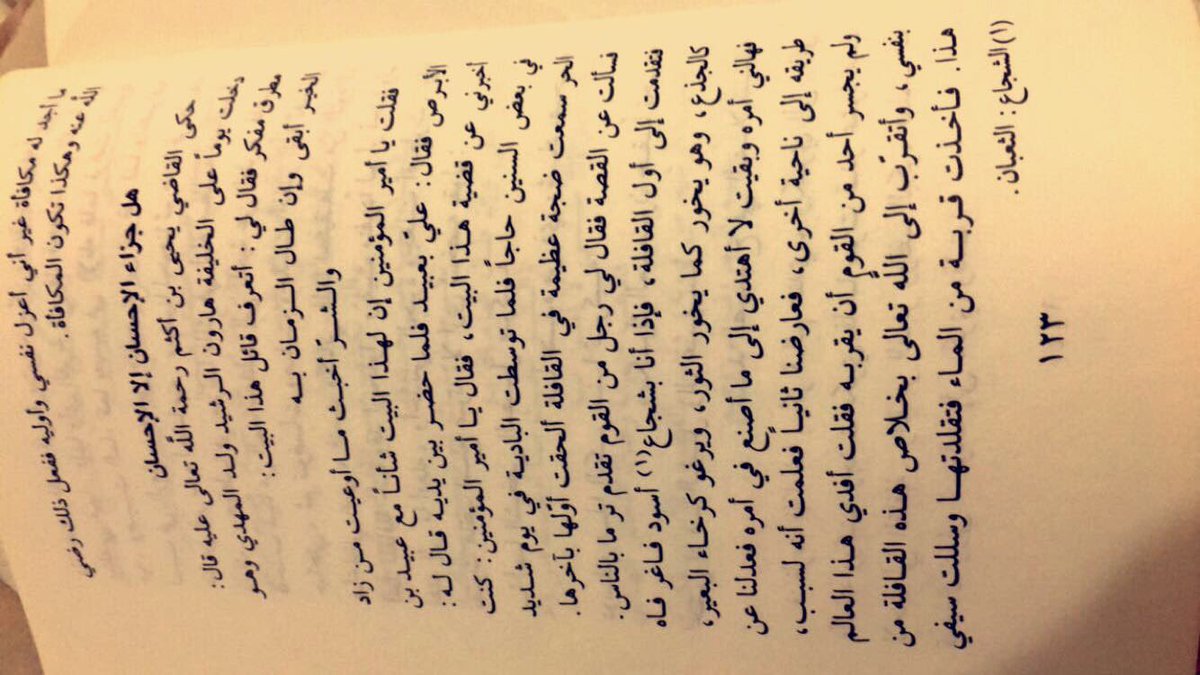 ما أجد له مكافأة غير أني أعزل نفسي وأوليه ففعل ذلك رضي
الله عنه وهكذا تكون المكافأة.
هل جزاء الإحسان إلا الإحسان
حكى القاضي يحيى بن أكثم رحمة الله تعالى عليه قال:
دخلت يوماً على الخليفة هارون الرشيد ولد المهدي وهو
مطرق مفكر فقال لي: أتعرف قائل هذا البيت:
الخير أبقى وإن طال الزمان به
والشر أخبث ما أوعيت من زاد
فقلت يا أمير المؤمنين إن لهذا البيت شأناً مع عبيد بن
الأبرص فقال: عليّ بعبيد فلما حضر بين يديه قال له:
أخبرني عن قضية هذا البيت، فقال يا أمير المؤمنين: كنت
في بعض السنين حاجاً فلما توسطت البادية في يوم شديد
الحر سمعت ضجة عظيمة في القافلة ألحقت أوّلها بآخرها.
فسألت عن القصة فقال لي رجل من القوم تقدم تر ما بالناس.
فتقدمت إلى أول القافلة، فإذا أنا بشجاع(١) أسود فاغر فاه
كالجذع، وهو يخور كما يخور الثور، ويرغو كرخاء البعير،
فهالني أمره وبقيت لا أهتدي إلى ما أصنع في أمره فعدلنا عن
طريقه إلى ناحية أخرى، فعارضنا ثانياً فعلمت أنه لسبب،
ولم يجسر أحد من القوم أن يقربه فقلت أفدي هذا العالم
بنفسي، وأتقرّب إلى الله تعالى بخلاص هذه القافلة من
هذا. فأخذت قربة من الماء فتقلدتها وسللت سيفي
(١) الشجاع: الثعبان.
١٢٣